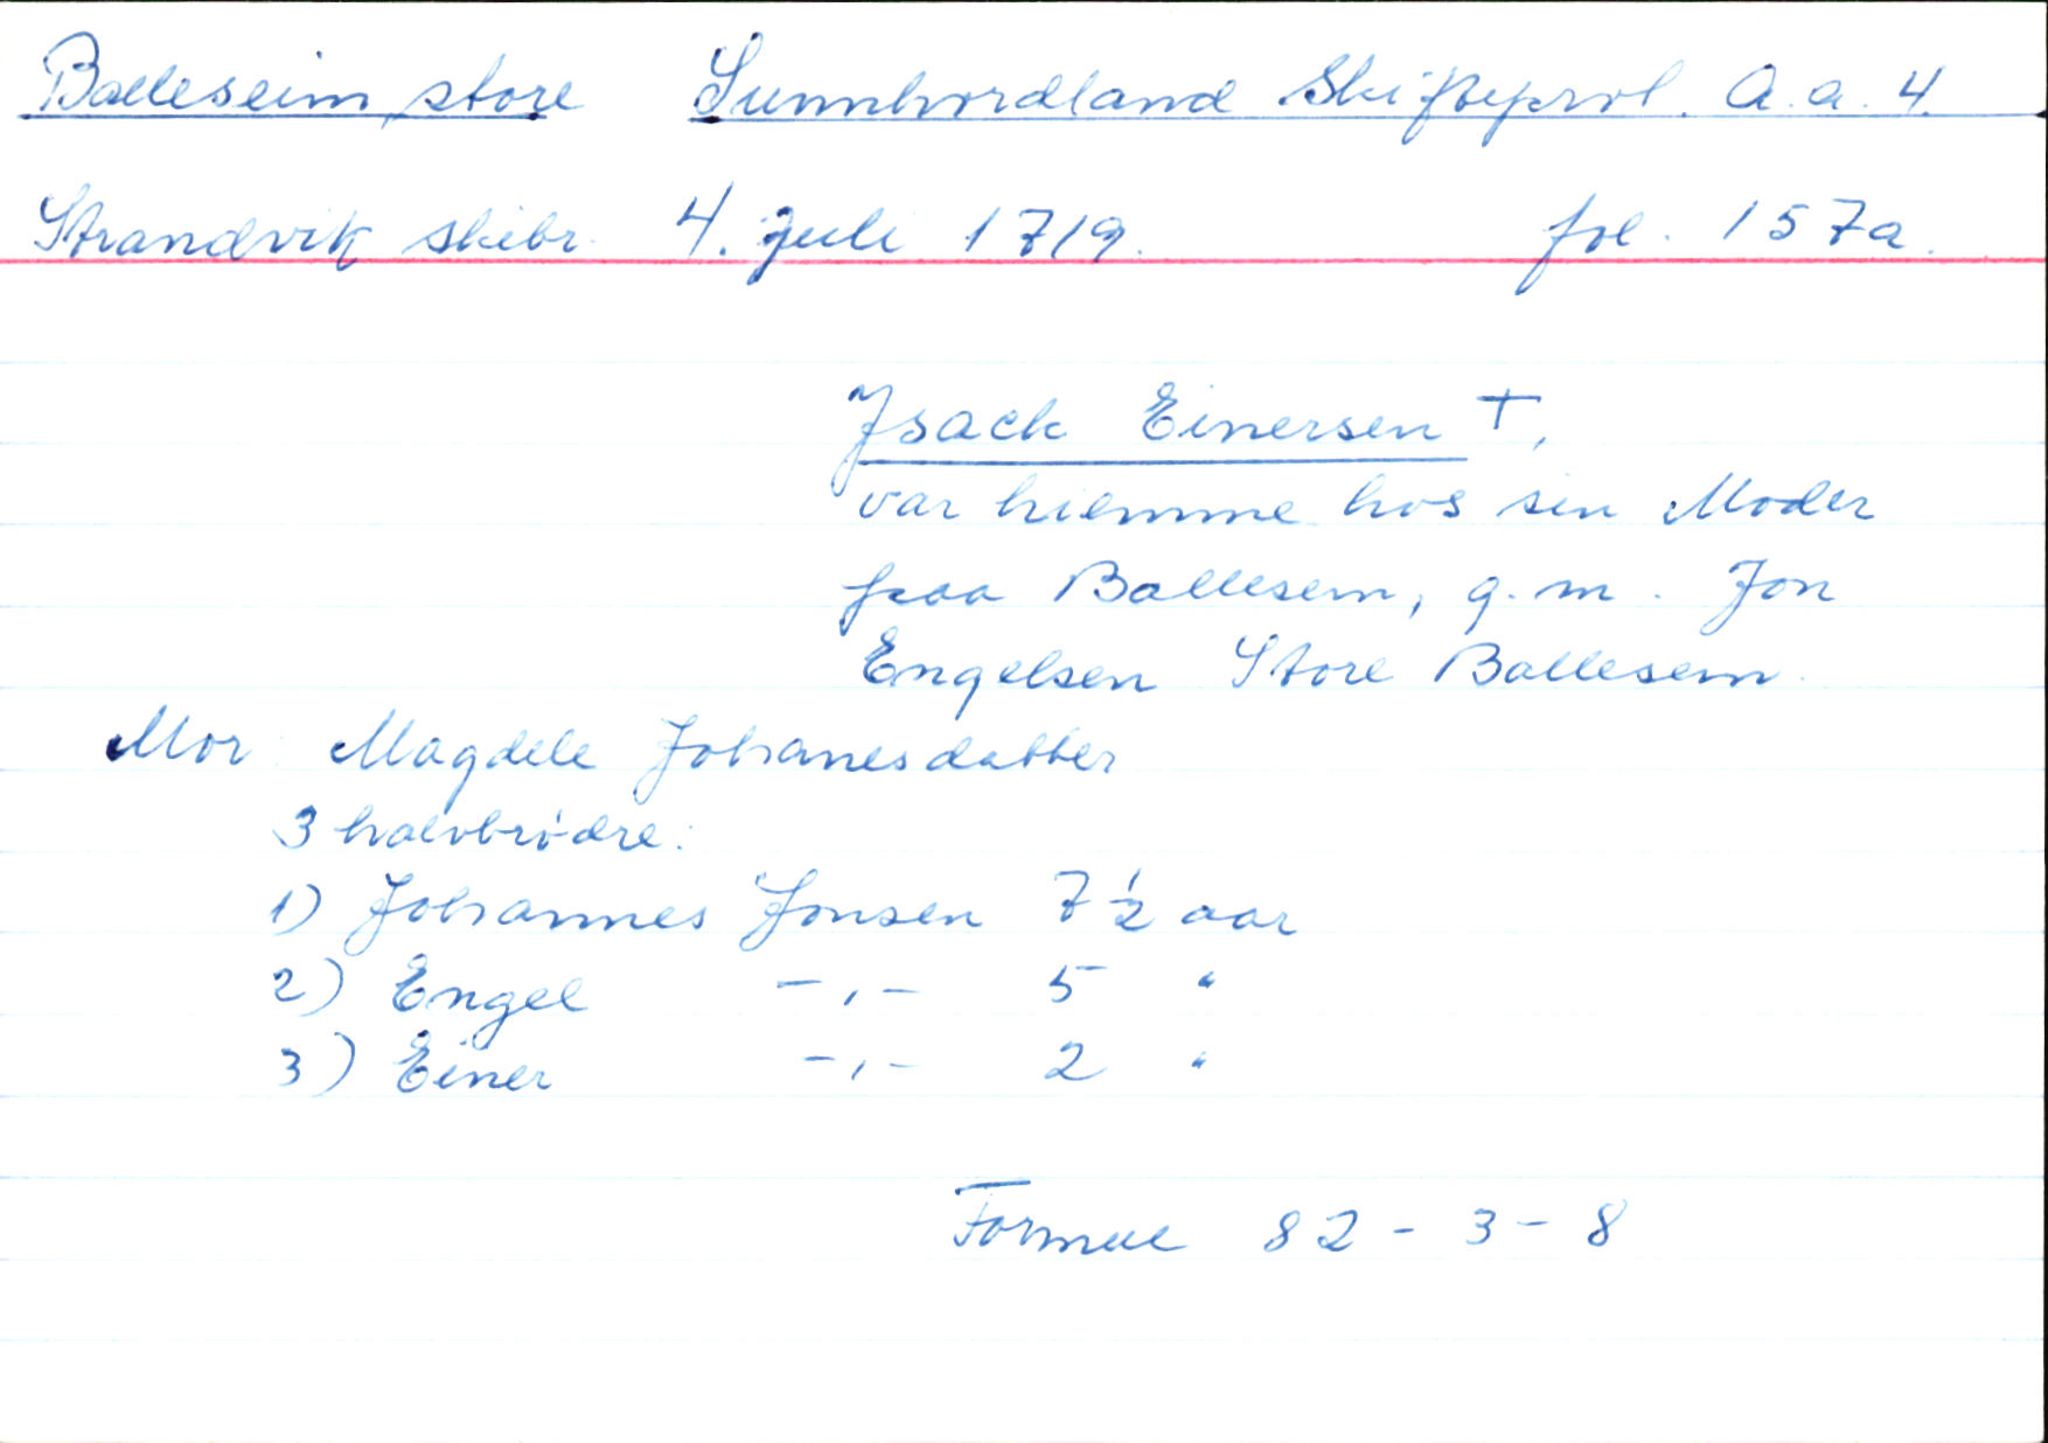 Balleseim, store Sunnhordland Skifteprol. A.a. 4.
Strandvik skibr. 4. Juli 1719. fol. 157a.
Isack Einersen +,
var hiemme hos sin Moder
paa Ballesem, g.m. Jon
Engelsen Store Ballesem.
Mor: Magdele Johanesdatter
3 halvbrødre:
1) Johannes Jonsen 7 1/2 aar
2) Engel -,- 5 "
3) Einer -,- 2 "
Formue 82 - 3 - 8